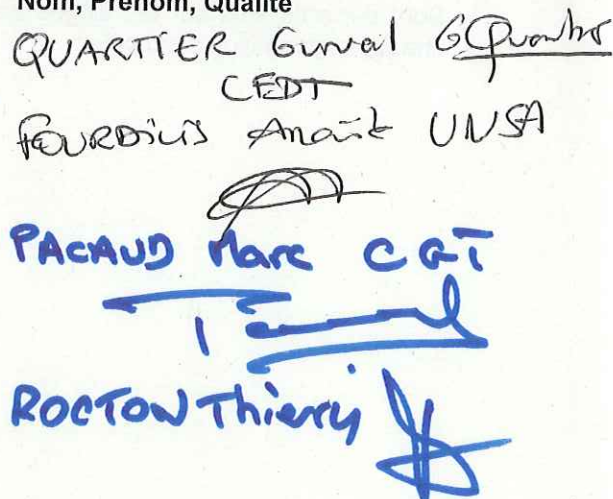 Nom, Prénom, Qualité
QUARTIER Gurval GQuartier
CFDT
FOURDILIS Anaïk UNSA
PACAUD Marc CGT
ROCTON Thierry